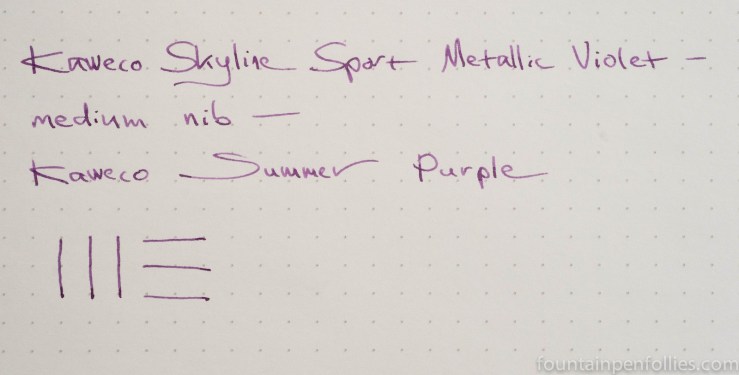 Kaweco Skyline Sport Metallic Violet –
medium nib —
Kaweco Summer Purple
fountainpenfollies.com